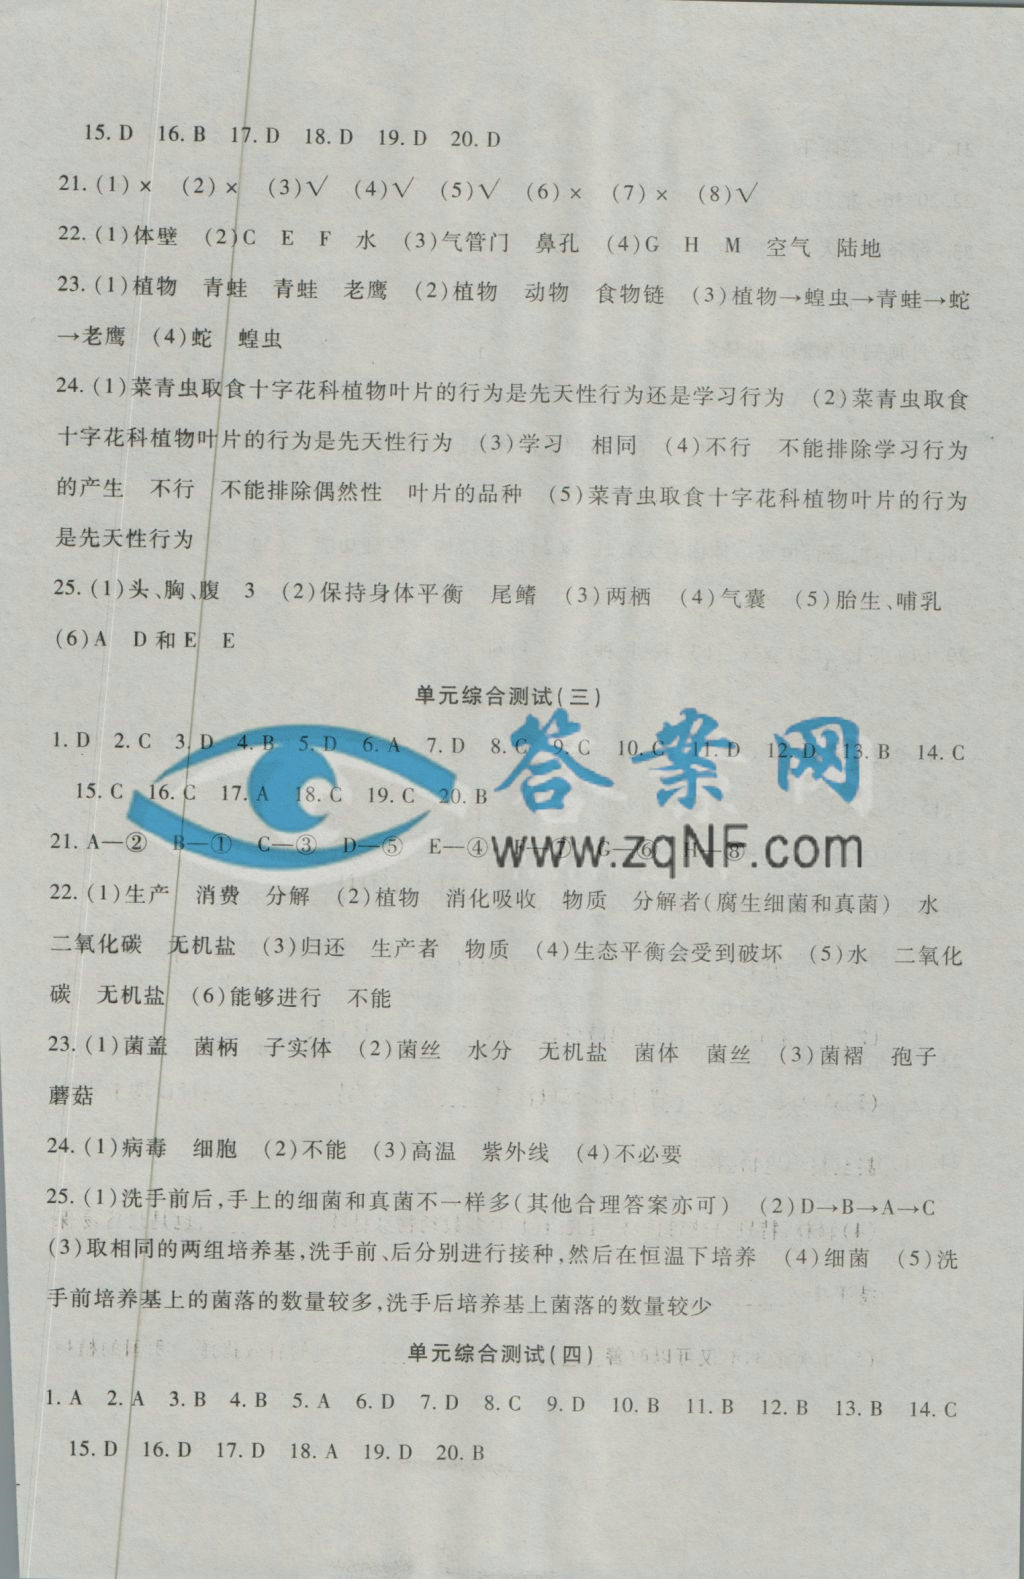 15. D 16. B 17. D 18. D 19. D 20. D
21. (1)× (2)× (3)√ (4)√ (5)√ (6)× (7)× (8)√
22. (1)体壁 (2)C E F 水 (3)气管门 鼻孔 (4)G H M 空气 陆地
23. (1)植物 青蛙 青蛙 老鹰 (2)植物 动物 食物链 (3)植物→蝗虫→青蛙→蛇
→老鹰 (4)蛇 蝗虫
24. (1)菜青虫取食十字花科植物叶片的行为是先天性行为还是学习行为 (2)菜青虫取食
十字花科植物叶片的行为是先天性行为 (3)学习 相同 (4)不行 不能排除学习行为
的产生 不行 不能排除偶然性 叶片的品种 (5)菜青虫取食十字花科植物叶片的行为
是先天性行为
25. (1)头、胸、腹 3 (2)保持身体平衡 尾鳍 (3)两栖 (4)气囊 (5)胎生、哺乳
(6)A D和E E
单元综合测试(三)
1. D 2. C 3. D 4. B 5. D 6. A 7. D 8. C 9. C 10. C 11. D 12. D 13. B 14. C
15. C 16. C 17. A 18. C 19. C 20. B
答案网
www.zqNF.com
21. A—② B—① C—③ D—⑤ E—④ F—⑦ G—⑥ H—⑧
22. (1)生产 消费 分解 (2)植物 消化吸收 物质 分解者(腐生细菌和真菌) 水
二氧化碳 无机盐 (3)归还 生产者 物质 (4)生态平衡会受到破坏 (5)水 二氧化
碳 无机盐 (6)能够进行 不能
23. (1)菌盖 菌柄 子实体 (2)菌丝 水分 无机盐 菌体 菌丝 (3)菌褶 孢子
蘑菇
24. (1)病毒 细胞 (2)不能 (3)高温 紫外线 (4)不必要
25. (1)洗手前后,手上的细菌和真菌不一样多(其他合理答案亦可) (2)D→B→A→C
(3)取相同的两组培养基,洗手前、后分别进行接种,然后在恒温下培养 (4)细菌 (5)洗
手前培养基上的菌落的数量较多,洗手后培养基上菌落的数量较少
单元综合测试(四)
1. A 2. A 3. B 4. B 5. A 6. D 7. D 8. C 9. D 10. B 11. B 12. B 13. B 14. C
15. D 16. D 17. D 18. A 19. D 20. B